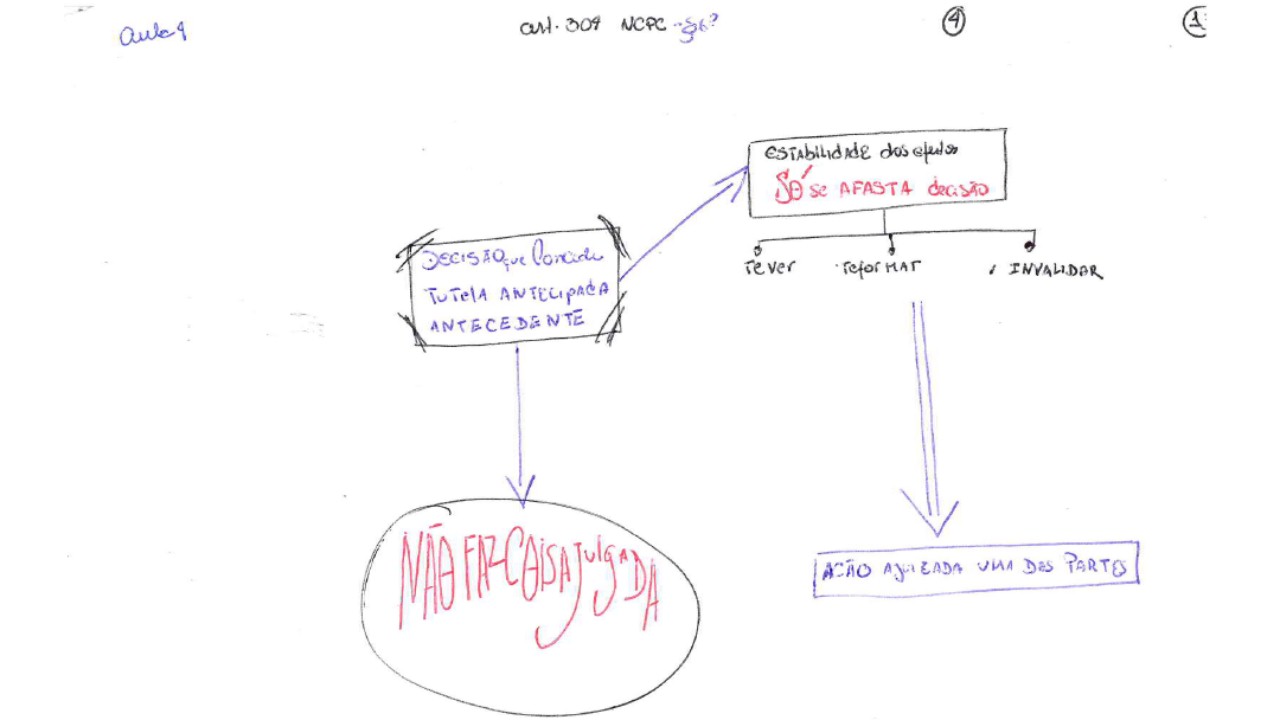 Aula 9
art. 304 NCPC - § 6º
4
1
ESTABILIDADE dos efeitos
SÓ se AFASTA decisão
rever
reforMAr
INVALIDAR
DECISÃO que Concede
TUTELA ANTECIPADA
ANTECEDENTE
NÃO FAZ COISA JULGADA
AÇÃO AJUIZADA UMA DAS PARTES